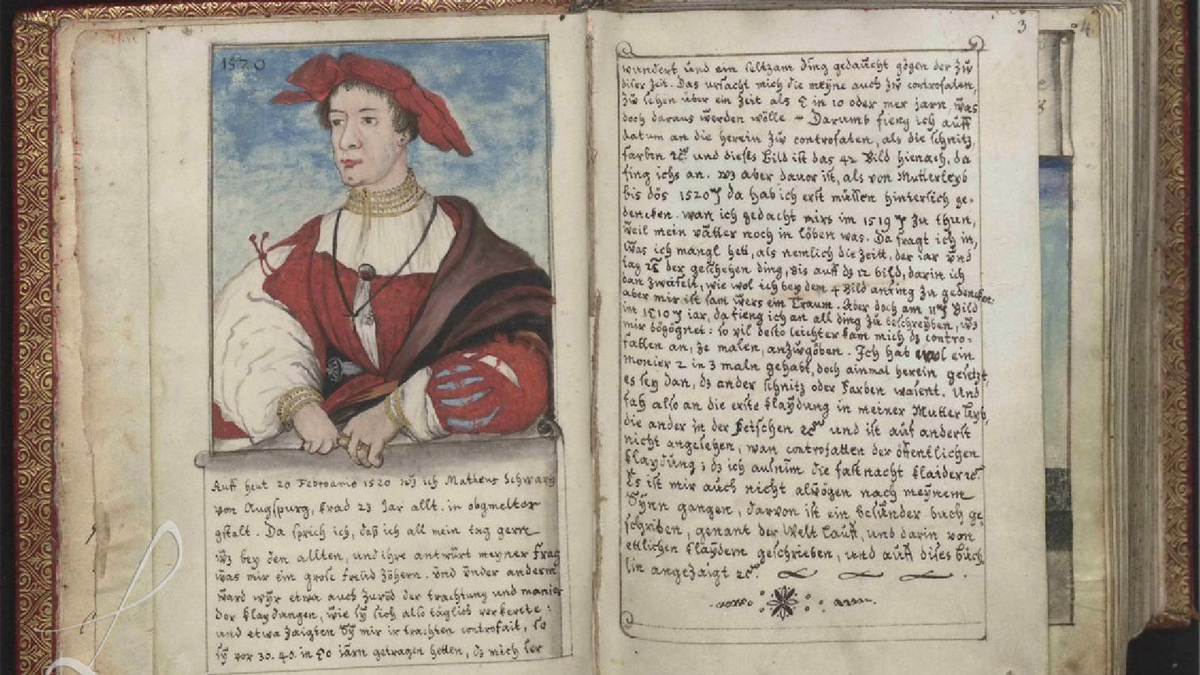 1520
Auff heut 20 Febroario 1520 wz ich Matheus Schwartz
von Augspurg, krad 23 Jar allt, in obgmelter
gstalt. Da sprich ich, daß ich all mein tag gern
wz bey den allten, und ihre antwürt meyner frag
was mir ein große freüd zöhern. Und under anderm
ward wyr etwa auch zuröd der trachtung und manier
der klaydungen, wie sy sich also täglich verkerete:
und etwa zaigten sy mir ir trachten controfait, so
sy vor 30. 40. in 50 iärn getragen hetten, dz mich ser
3
4
wundert und ein seltzam ding gedaücht gögen der zü
diser zeit. Das ursacht mich die meyne auch zü controfaten,
zü sehen über ein zeit als 5 in 10 oder mer jarn, was
doch daraus werden wölle – Darumb fieng ich auff
datum an die herein zü controfaten, als die schnitz,
farben &c und dieses Bild ist das 42 Bild hienach, da
fing ichs an. wz aber davor ist, als von Mutterleyb
bis dös 1520 da hab ich erst müssen hinterlich ge-
dencken. wan ich gedacht mirs im 1519 zu thun,
weil mein vätter noch in löben was. Da fragt ich in,
was ich mangl hett, als nemlich die zeitt, der iar und
tag &c der geschehen ding, bis auff dz 12 bild, darin ich
dan zwäfelt, wie wol ich bey dem 4 Bild anfing zu gedencken:
aber mir ist sam wers ein Traum. Aber doch am 11 Bild
im 1510 iar, da fieng ich an all ding zu beschreyben, wz
mir bögögnet: so vil desto leichter kam mich dz contro-
fatten an, ze malen, anzwgöben. Ich hab wol ein
monier 2 in 3 maln gehabt, doch ainmal herein gesetzt,
es sey dan, dz ander schnitz oder farben waient. Und
fach also an die erste klaydung in meiner Mutter leyb,
die ander in der Fetschen &c und ist auf anderst
nicht angesehen, wan controfatten der öffentlichen
klaydung; dz ich ausnim die fastnacht klaider &c.
Es ist mir auch nicht alwögen nach meynem
Synn gangen, darvon ist ein besunder buch ge-
schriben, genant der Welt Lauff, und darin von
ettlichen klaydern geschrieben, und auff dises büch-
lin angezaigt &c.